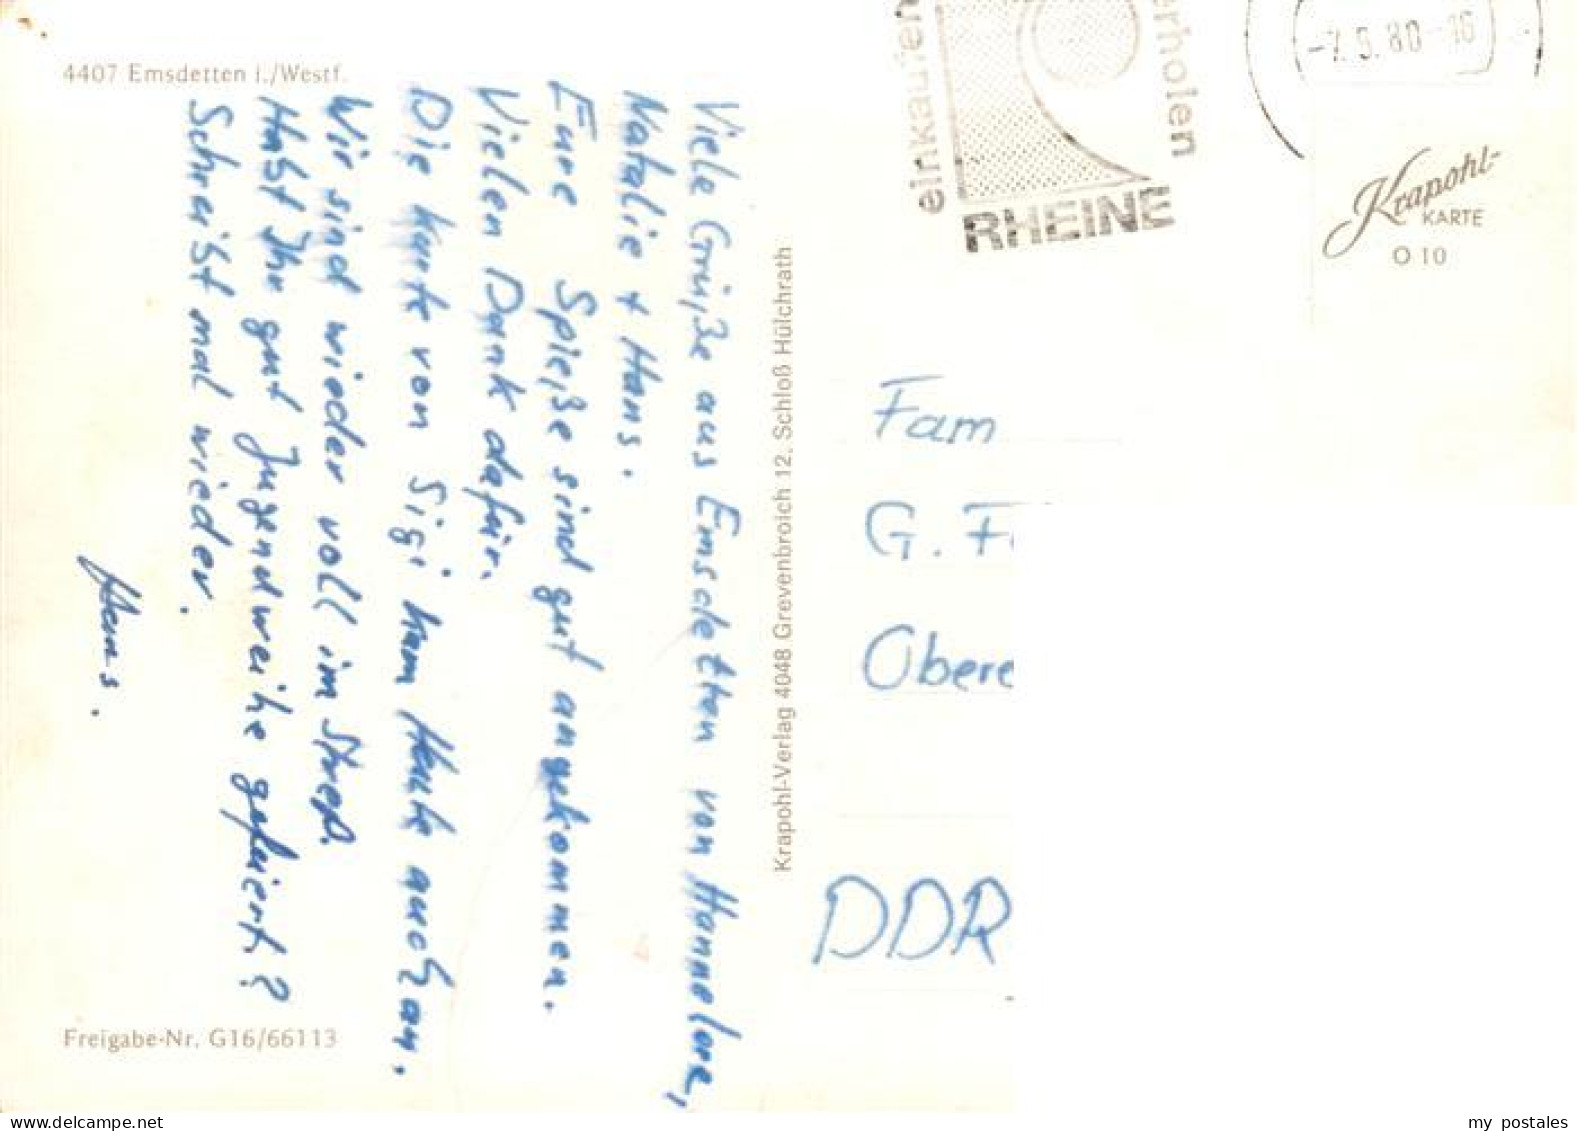 4407 Emsdetten i./Westf.
Viele Grüße aus Emsdetten von Hannelore,
Natalie + Hans.
Eure Spieße sind gut angekommen.
Vielen Dank dafür.
Die Karte von Sigi kam Heute auch an.
Wir sind wieder voll im Streß.
Habt Ihr gut Jugendweihe gefeiert?
Schreibt mal wieder.
Hans.
Freigabe-Nr. G16/66113
Krapohl-Verlag 4048 Grevenbroich 12, Schloß Hülchrath
einkaufen
erholen
RHEINE
-7.5.80-16
Krapohl-
KARTE
O 10
Fam
G. F
Obere
DDR
my postales
www.delcampe.net